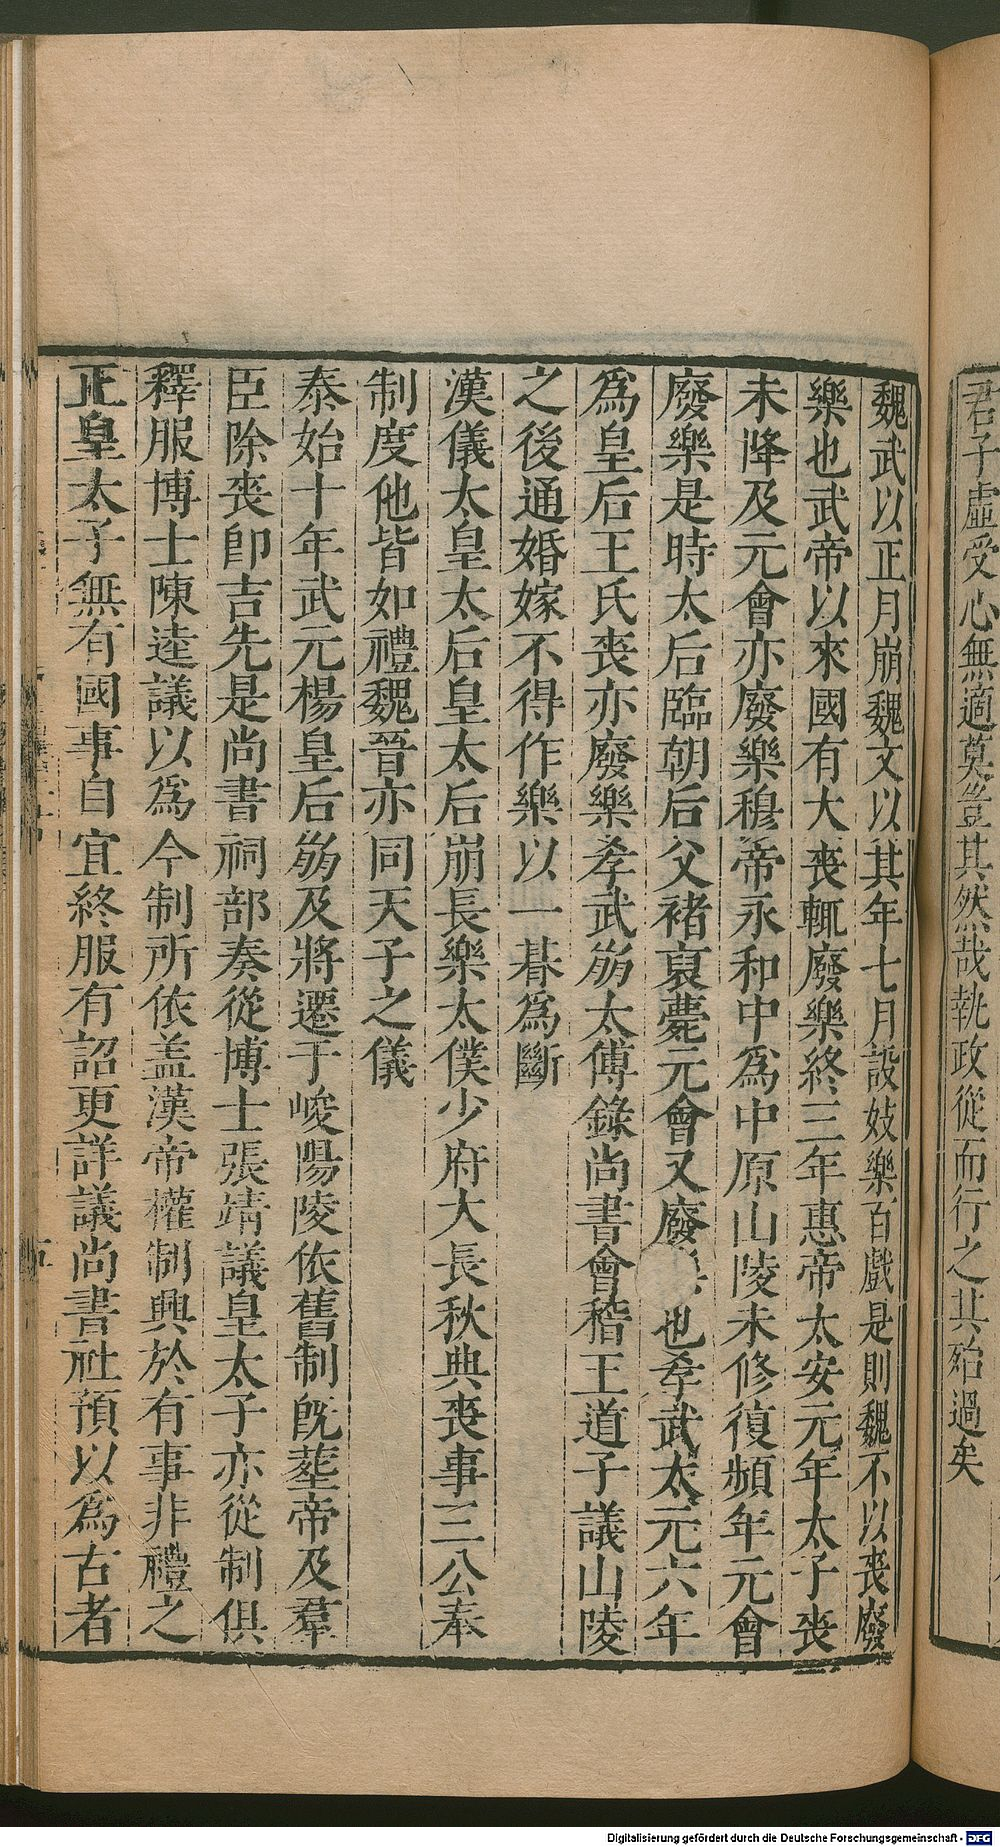 君子虛受心無適莫豈其然哉執政從而行之其殆過矣
魏武以正月崩魏文以其年七月設妓樂百戲是則魏不以喪廢
樂也武帝以來國有大喪輒廢樂終三年惠帝太安元年太子喪
未降及元會亦廢樂穆帝永和中爲中原山陵未修復頻年元會
廢樂是時太后臨朝后父褚裒薨元會又廢也孝武太元六年
爲皇后王氏喪亦廢樂孝武崩太傅錄尚書會稽王道子議山陵
之後通婚嫁不得作樂以一朞爲斷
漢儀太皇太后皇太后崩長樂太僕少府大長秋典喪事三公奉
制度他皆如禮魏晉亦同天子之儀
泰始十年武元楊皇后崩及將遷于峻陽陵依舊制旣葬帝及羣
臣除喪卽吉先是尚書祠部奏從博士張靖議皇太子亦從制俱
釋服博士陳逵議以爲今制所依盖漢帝權制興於有事非禮之
正皇太子無有國事自宜終服有詔更詳議尚書社預以爲古者
Digitalisierung gefördert durch die Deutsche Forschungsgemeinschaft - DFG